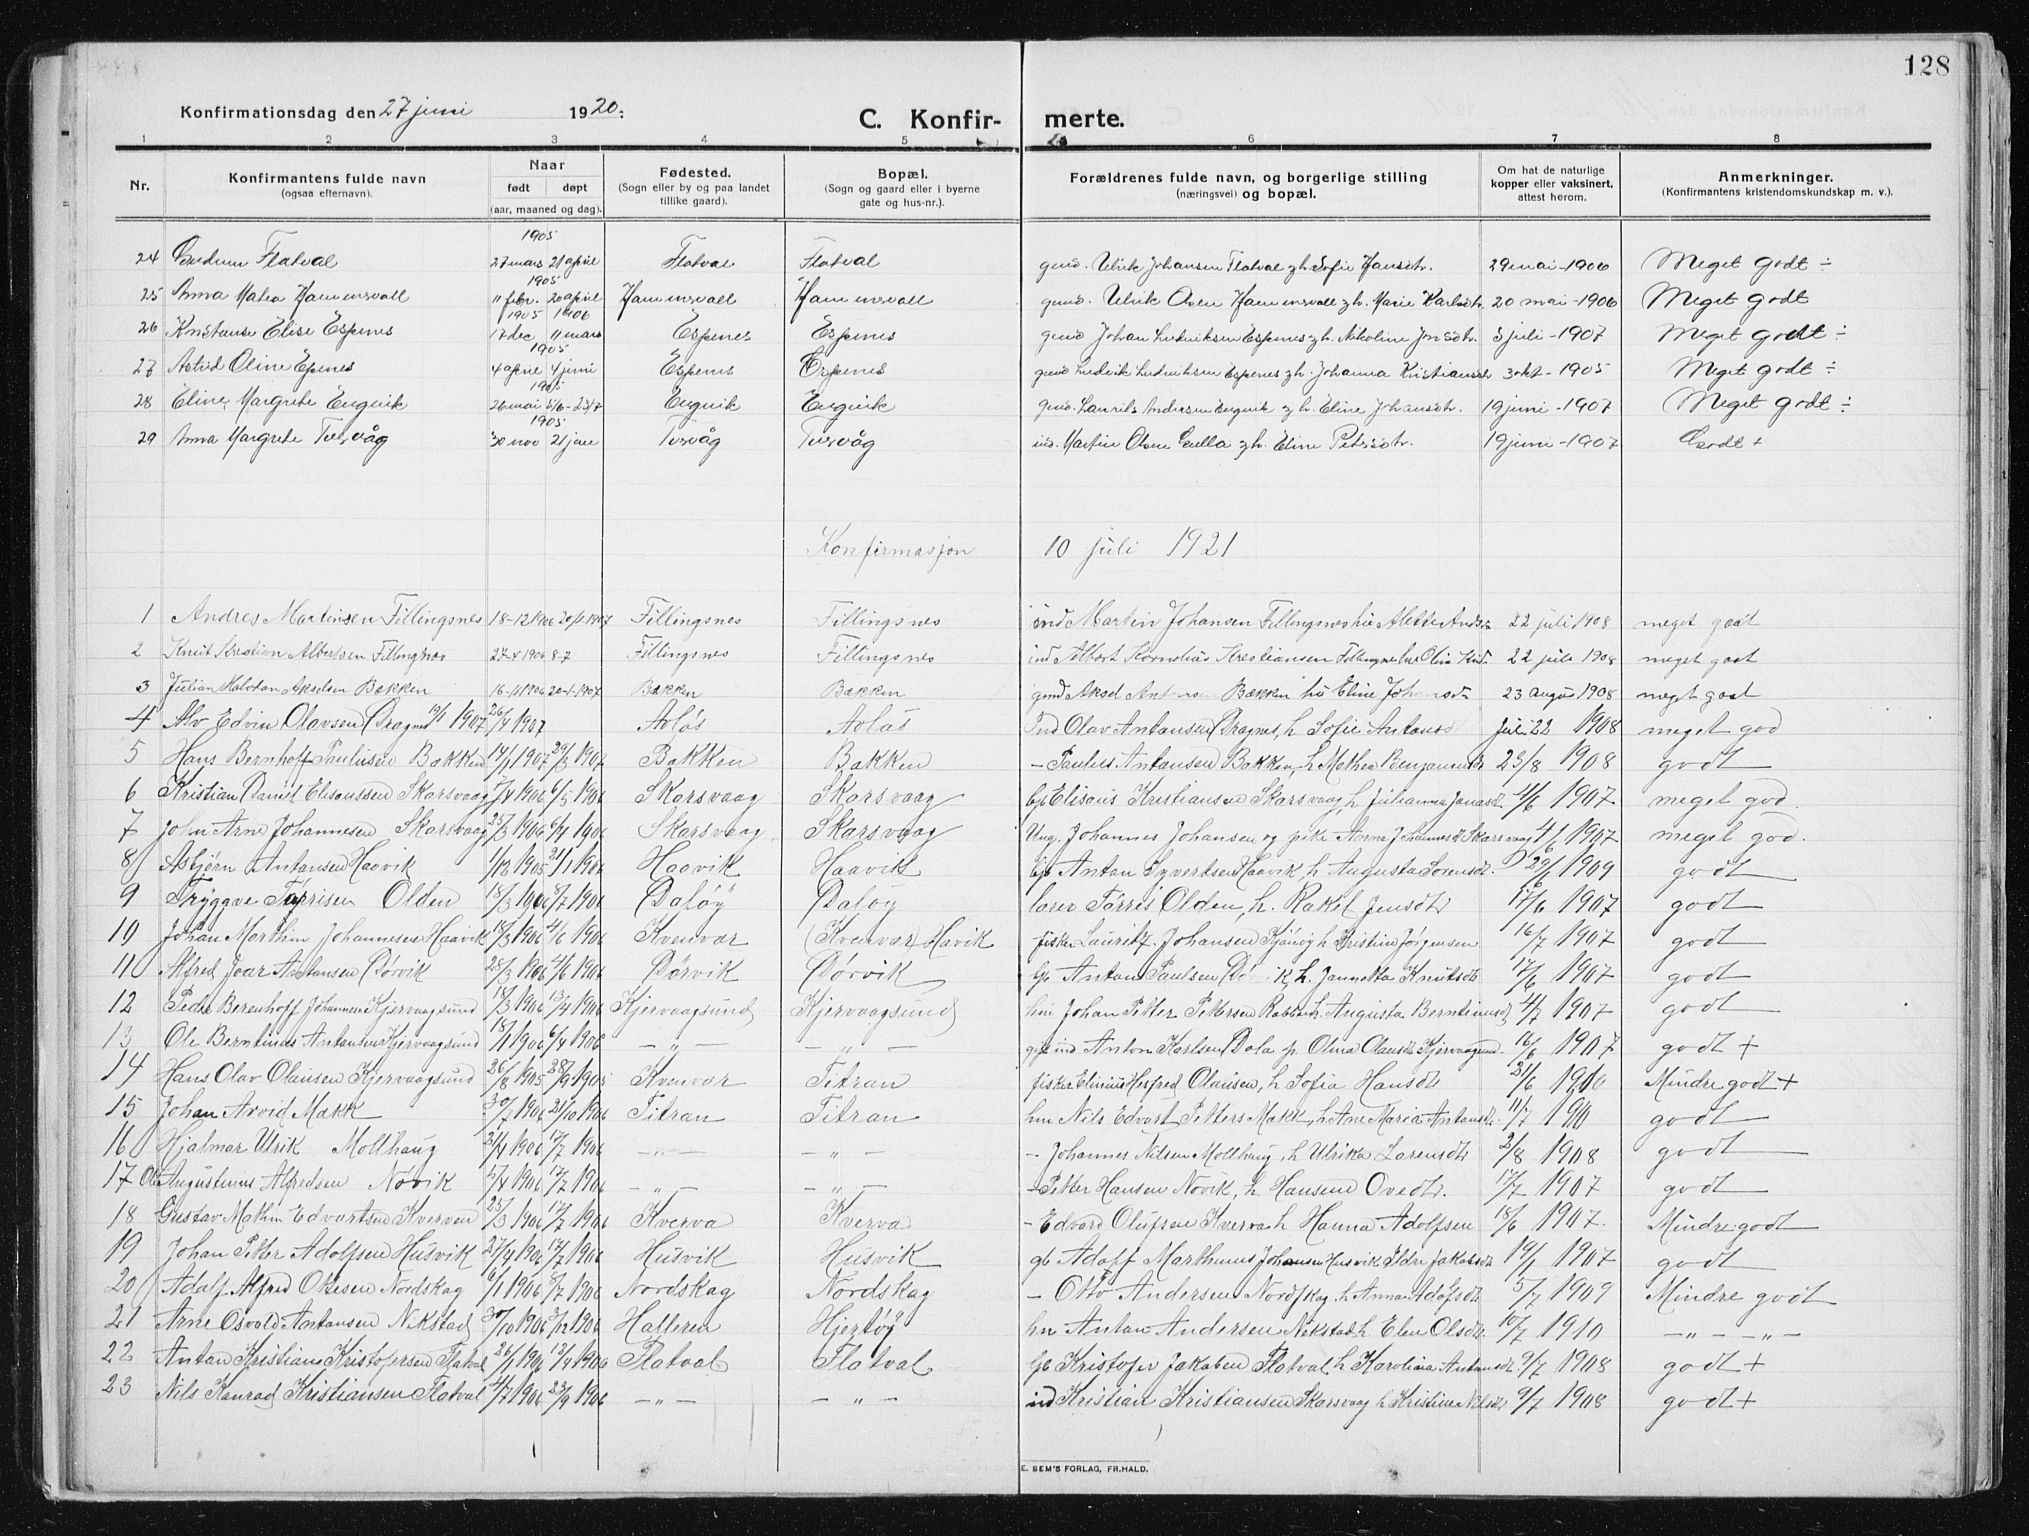 128
Konfirmationsdag den 27 juni 1920.
C. Konfir- merte.
1 2 3 4 5 6 7 8
Nr. Konfirmantens fulde navn (ogsaa efternavn). Naar født døpt (aar, maaned og dag). Fødested. (Sogn eller by og paa landet tillike gaard). Bopæl. (Sogn og gaard eller i byerne gate og hus-nr.). Forældrenes fulde navn, og borgerlige stilling (næringsvei) og bopæl. Om hat de naturlige kopper eller vaksinert, attest herom. Anmerkninger. (Konfirmantens kristendomskundskap m. v.).
1905
24 Gudrun Flatval 27 mars 21 april Flatval Flatval gmd. Ulrik Johansen Flatval & h. Sofie Hansdtr. 29 mai - 1906 Meget godt ÷
1905
25 Anna Matea Hammersvall 11 febr. 20 april Hammersvall Hammersvall gmd. Ulrik Olsen Hammersvall & h. Marie Karlsdtr. 20 mai - 1906 Meget godt
1905 1906
26 Kristanse Elise Espenes 17 dec 11 mars Espenes Espenes gmd Johan Ludriksen Espenes & h. Nikoline Jonsdtr. 3 juli - 1907 Meget godt ÷
1905
27 Astrid Oline Espenes 4 april 4 juni Espenes Espenes gmd Ludvik Ludriksen Espenes & h. Johanna Kristiansdtr 3 okt - 1905 Meget godt ÷
1905
28 Eline Margrete Engvik 26 mai 5/6 - 23/7 Engvik Engvik gmd. Laurits Andersen Engvik & h. Eline Johansdtr. 19 juni - 1907 Meget godt ÷
1905
29 Anna Margrete Tusvåg 30 nov 21 jan Tusvåg Tusvåg ind. Martin Olsen Gulla & h. Eline Petersdtr. 19 juni - 1907 Godt +
Konfirmasjon 10 juli 1921
1 Andres Martinsen Fillingsnes 18-12 1906 20/1 1907 Fillingsnes Fillingsnes ind Martin Johansen Fillingsnes hu Alette Andsdtr 22 juli 1908 meget godt
2 Knut Kristian Albertsen Fillingsnes 27-4 1906 8-7 Fillingsnes Fillingsnes ind Albert Kornelius Kristiansen Fillingsnes hu Olia Knd. 22 juli 1908 meget godt
3 Julian Halvdan Akselsen Bækken 16-11 1906 20-1-1907 Bækken Bækken gmd Aksel Antonsen Bækken hu Eline Johansdtr 23 august 1908 meget godt
4 Alv Edvin Olavsen Dragsnes 19/1 1907 26/4 1907 Avlös Avlös Ind Olav Antansen Dragsnes, h Sofie Antansd juli 22 1908 meget god
5 Hans Bernhoff Paulusen Bakken 14/1 1907 29/3 1907 Bakken Bakken - Paulus Antansen Bakken, h Mathea Benjaminsdtr 23/8 1908 godt
6 Kristian Daniel Elisaussen Skarsvaag 7/4 1906 6/5 1906 Skarsvaag Skarsvaag Gb Elisaus Kristiansen Skarsvaag, h Julianna Jonasdtr 4/6 1907 meget god.
7 John Arne Johannesen Skarsvaag 25/3 1906 6/4 1906 Skarsvaag Skarsvaag Ung. Johannes Johansen og pike Anna Johannesdtr Skarsvaag 4/6 1907 meget god.
8 Asbjørn Antansen Haavik 1/12 1905 21/1 1906 Haavik Haavik Gb Antan Syvertsen Haavik, h Augusta Sorensdtr. 29/6 1909 godt
9 Tryggve Tørrisen Olden 18/3 1906 8/7 1906 Daløy Daløy lærer Tørris Olden, h. Rakel Jensdtr 17/6 1907 godt
10 Johan Marthin Johannesen Haavik 14/3 1906 4/6 1906 Kvenvær (Kvenvær) Havik fisker Lauritz Johansen Kjönöy h Kristine Jørgensen 16/7 1907 godt
11 Alfred Joar Antansen Dörvik 28/3 1906 4/6 1906 Dörvik Dörvik Gb Antan Paulsen Dörvik, h. Jannetta Knutsdtr 17/6 1907 godt
12 Peder Berenhoff Johannesen Kjervaagsund 14/3 1906 13/4 1906 Kjervaagsund Kjervaagsund hm Johan Petter Pettersen Rabben h. Augusta Berntinusdtr 4/7 1907 godt
13 Ole Berntinus Antansen Kjervaagsund 18/1 1906 6/4 1906 - " - - " - gift ind Anton Karlsen Dola p. Olina Olausdtr Kjervaagsund. 16/6 1907 godt +
14 Hans Olav Olausen Kjervaagsund 26/8 1905 28/9 1905 Kvenvær Titran fisker Elinius Hesfred Olausen, h Sofia Hansdtr 21/6 1910 Mindre godt +
15 Johan Arvid Makk 30/7 1906 21/10 1906 Titran Titran hm Nils Edvart Petters Makk, h Ane Maria Antansdtr. 11/7 1910 godt
16 Hjalmar Ulrik Mollhaug 21/4 1906 17/7 1906 - " - - " - - Johannes Nilsen Mollhaug, h Ulrikka Lorensdtr 2/8 1908 godt
17 Ole Augustinius Alfredsen Növik 5/4 1906 17/7 1906 - " - - " - - Petter Hansen Növik, h. Hansine Ovedtr. 17/7 1907 godt
18 Gustav Mathin Edvartsen Kverven 23/3 1906 17/7 1906 Kverva Kverva - Edvard Olufsen Kverva h Hanna Adolfsen 18/6 1907. Mindre godt
19 Johan Petter Adolfsen Husvik 27/4 1906 17/7 1906 Husvik Husvik gb Adolf Marthinus Johansen Husvik Eldre Jakobsdtr 19/1 1907 godt
20 Adolf Alfred Ottesen Nordskag 6/1 1906 8/7 1906 Nordskag Nordskag - Otto Andersen Nordskag, h Anna Adofsdtr 5/7 1909 Mindre godt
21 Arne Osvald Antansen Nekstad 30/10 1906 3/12 1906 Hatteren Hjertöy hm Antan Andersen Nekstad h Elen Olsdtr. 10/7 1910 - " - - " -
22 Antan Kristian Kristofersen Flatval 26/1 1906 13/4 1906 Flatval Flatval Gb Kristofer Jakobsen Flatval h Karolina Antansdtr. 9/7 1908 godt +
23 Nils Konrad Kristiansen Flatval 4/7 1906 23/9 1906 - " - - " - ind Kristian Kristiansen Skarsvaag h Kristine Nilsdtr 9/7 1908 godt +
E. SEM'S FORLAG, FR.HALD.